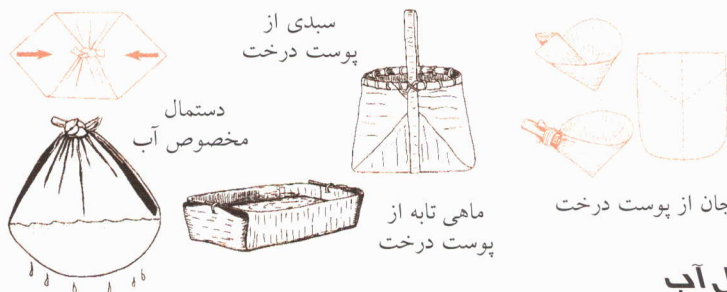 سبدی از
پوست درخت
دستمال
مخصوص آب
ماهی تابه از
پوست درخت
از پوست درخت
آب